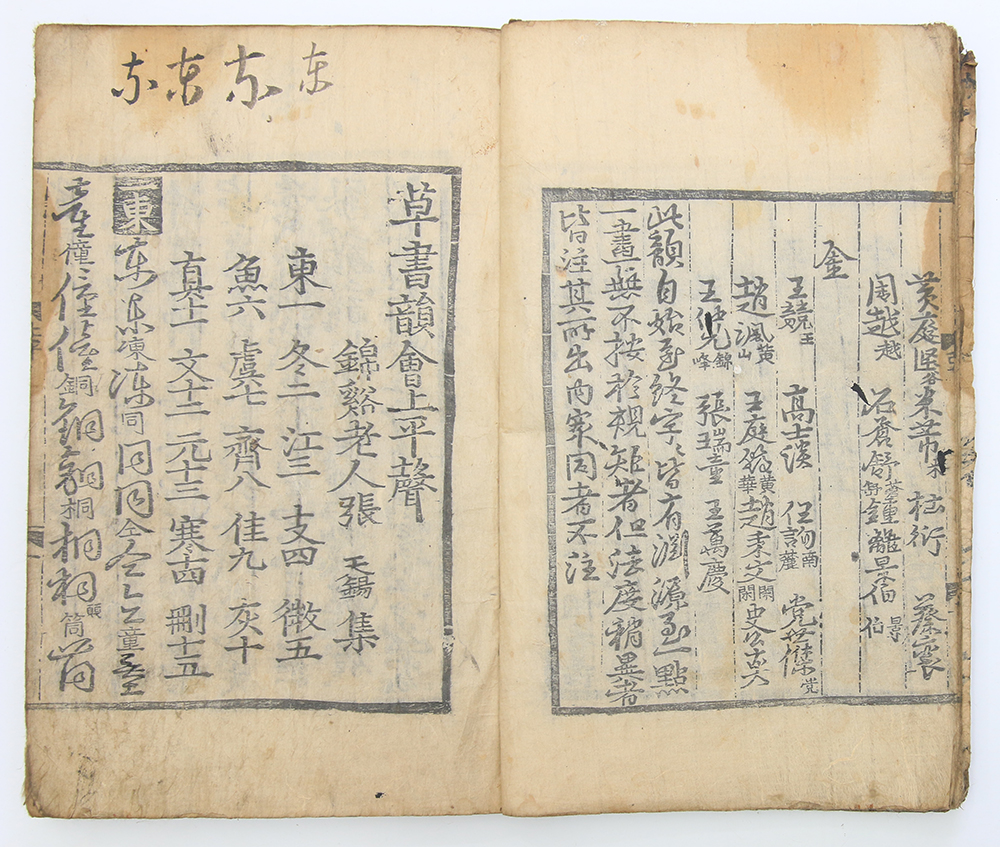 黃庭堅谷 米芾米 杜衍 蔡襄
周越越 石蒼舒蒼舒 鍾離景伯景伯
金
王競王 高士談 任詢南麓 党世傑党
趙渢黃山 王庭筠黃華 趙秉文閑閑 史公奕
王仲元錦峰 張瑞童 王萬慶
此韻自始至終字〻皆有淵源至一點
一畫無不按於規矩者但法度稍異者
皆注其所出內案同者不注
东东东东
草書韻會上平聲
錦谿老人張 天錫 集
東一 冬二 江三 支四 微五
魚六 虞七 齊八 佳九 灰十
真十一 文十二 元十三 寒十四 刪十五
一東 东 东 凍 凍 同 同 同 仝 仝 仝 童 童
童 僮 僮 僮 銅 銅 銅 桐 桐 桐 筒 筒